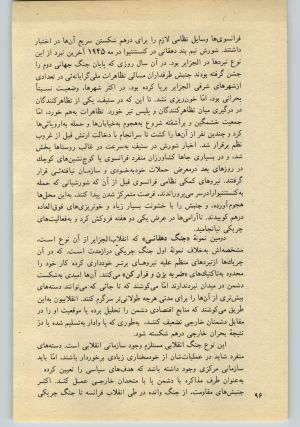 فرانسویها وسایل نظامی لازم را برای درهم شکستن سریع آن‌ها در اختیار
داشتند. شورش نیم بند دهقانی در کنستنتینوا در مه ۱۹۴۵ آخرین نبرد از این
نوع نبردها در الجزایر بود. در آن سال روزی که پایان جنگ جهانی دوم را
جشن گرفته بودند جنبش طرفداران مسالی تظاهرات ملی‌گرایانه‌ئی در تعدادی
ازشهرهای شرقی الجزایر برپا کرده بود. در اکثر شهرها، وضعیت نسبتاً
بحرانی بود، امّا خون‌ریزی نشد. تا این که در ستیف، یکی از تظاهرکنندگان
در درگیری میان تظاهرکنندگان و پلیس تیر خورد. تظاهرات به‌هم خورد، امّا
جمعیت خشمگین و برآشفته شروع به‌هجوم به‌خیابان‌ها و حمله به‌اروپائی‌ها
کرد و چندین نفر از آن‌ها را کشت تا سرانجام با دخالت ارتش قبل از غروب
نظم برقرار شد. اخبار شورش در ستیف به‌سرعت در غالب روستاها پخش
شد، و در بسیاری جاها کشاورزان منفرد فرانسوی یا کوچ‌نشین‌های کوچك
در روزهای بعد درمعرض حملات خودبه‌خودی و سازمان نیافته‌ئی قرار
گرفتند. نیروهای کمکی نظامی فرانسوی قبل از آن که شورشیانی که حمله
به‌کنستنتینوا رادرسر می‌پروراندند، فرصت متمرکز شدن پیدا کنند. به‌این محل‌ها
هجوم‌آورده، و جنبش را با خشونت بسیار زیاد و خونریزی‌های فوق‌العاده
درهم کوبیدند. ناآرامی‌ها در عرض یکی دو هفته فروکش کرد و به‌فعالیت‌های
چریکی نیانجامید.
دومین نمونهٔ «جنگ دهقانی» که انقلاب‌الجزایر از آن نوع است،
مشخصه‌اش به‌خلاف نمونهٔ اول جنگ چریکی درازمدت است. که در آن
چریك‌ها ازنبردهای منظم علیه نیروهای برتر خودداری کرده کار خود را
محدود به‌تاکتیك‌های «ضربه بزن و فرار کن» می‌کنند. آن‌ها امیدی به‌شکست
دشمن در میدان نبردندارند امّا می‌کوشند که تا جائی که می‌توانند دسته‌های
بیش‌تری از آن‌ها را برای مدتی هرچه طولانی‌تر سرگرم کنند. انقلابیون به‌این
طریق می‌کوشند که منابع اقتصادی دشمن را تحلیل برده یا موقعیت او را در
مقابل دشمنان خارجی تضعیف کنند، به‌طوری که یا وادار به‌تسلیم شده یا در
نتیجهٔ بحران خارجی درهم شکسته شود.
این نوع جنگ انقلابی مستلزم وجود سازمانی انقلابی است. دسته‌های
منفرد شاید در عملیات‌شان از خودمختاری زیادی برخوردار باشند، امّا باید
سازمانی مرکزی وجود داشته باشد که هدف‌های سیاسی را تعیین کرده
به‌عنوان طرف مذاکره با دشمن یا با متحدان خارجی عمل کنند. اکثر
جنبش‌های مقاومت، از جنگ وانده در طی انقلاب فرانسه تا جنگ چریکی
۹۶